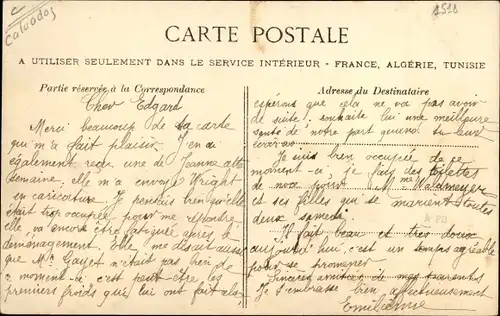 C
Calvados
1518
CARTE POSTALE
A UTILISER SEULEMENT DANS LE SERVICE INTÉRIEUR - FRANCE, ALGÉRIE, TUNISIE
Partie réservée à la Correspondance
Cher Edgard
Merci beaucoup de ta carte
qui m'a fait plaisir. J'en ai
également reçu une de Jeanne cette
semaine; elle m'a envoyé Wright
en caricature. Je pensais bien qu'elle
était trop occupée pour me répondre
elle va encore être fatiguée après le
déménagement. Elle me disait aussi
que Mr Gayet n'était pas bien de
moment-là c'est peut-être les
premiers froids qui lui ont fait
Adresse du Destinataire
espérons que cela ne va pas avoir
de suite! souhaite lui une meilleure
santé de notre part quand tu leur
écriras.
Je suis bien occupée de ce
moment-ci, je fais des toilettes
de noce pour Mme Waldmeyer
et ses filles qui se marient toutes
deux samedi.
Il fait beau et très doux
aujourd'hui c'est un temps agréable
pour se promener
Sincères amitiés de mes parents
Je t'embrasse bien affectueusement
Emilienne